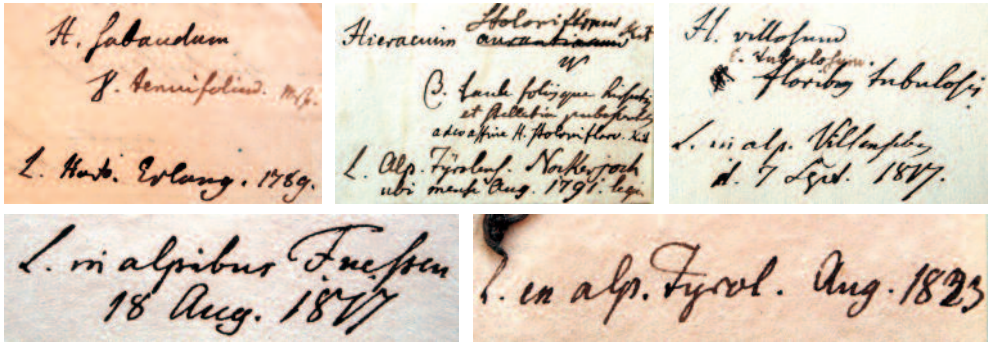 H. sabaudum
γ. tenuifolium.
L. Hort. Erlang. 1789.
Hieracium Stoloniflorum Kit
aurantiacum
β. Caule foliisque hirsutis
et stellatim pubescentib
adeo affine H. stoloniflor. Kit
L. Alp. Tyrolens. Nockerjoch
ubi mense Aug. 1791. legi
H. villosum
tubulosum.
floribus tubulosis
L. in alp. 
d. 7 Sept. 1817.
L. in alpibus Fuessen
18 Aug. 1817
L. in alp. Tyrol. Aug. 1823